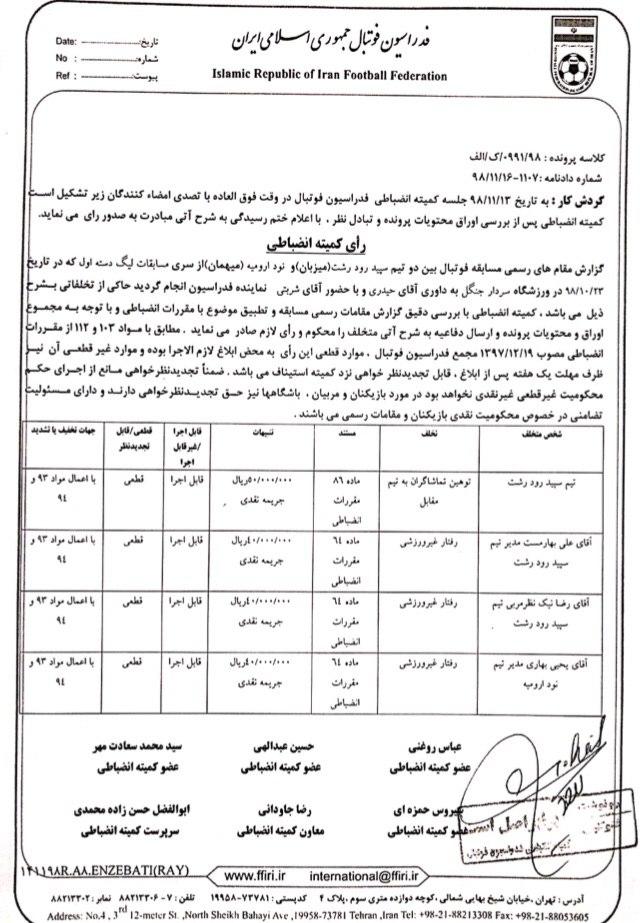 فدراسیون فوتبال جمهوری اسلامی ایران
Islamic Republic of Iran Football Federation
تاریخ: Date:
شماره: No :
پیوست: Ref :
کلاسه پرونده : ۰۹۹۱/۹۸/ک/الف
شماره دادنامه :۱۱۰۷-۹۸/۱۱/۱۶
گردش کار : به تاریخ ۹۸/۱۱/۱۳ جلسه کمیته انضباطی فدراسیون فوتبال در وقت فوق العاده با تصدی امضاء کنندگان زیر تشکیل است
کمیته انضباطی پس از بررسی اوراق محتویات پرونده و تبادل نظر ، با اعلام ختم رسیدگی به شرح آتی مبادرت به صدور رای می نماید.
رأی کمیته انضباطی
گزارش مقام های رسمی مسابقه فوتبال بین دو تیم سپید رود رشت(میزبان)و نود ارومیه (میهمان)از سری مسابقات لیگ دسته اول که در تاریخ
۹۸/۱۰/۲۳ در ورزشگاه سردار جنگل به داوری آقای حیدری و با حضور آقای شربتی نماینده فدراسیون انجام گردید حاکی از تخلفاتی بشرح
ذیل می باشد ، کمیته انضباطی با بررسی دقیق گزارش مقامات رسمی مسابقه و تطبیق موضوع با مقررات انضباطی و با توجه به مجموع
اوراق و محتویات پرونده و ارسال دفاعیه به شرح آتی متخلف را محکوم و رأی لازم صادر می نماید . مطابق با مواد ۱۰۳ و ۱۱۲ از مقررات
انضباطی مصوب ۱۳۹۷/۱۲/۱۹ مجمع فدراسیون فوتبال ، موارد قطعی این رأی به محض ابلاغ لازم الاجرا بوده و موارد غیر قطعی آن نیز
ظرف مهلت یک هفته پس از ابلاغ ، قابل تجدیدنظر خواهی نزد کمیته استیناف می باشد . ضمناً تجدیدنظرخواهی مانع از اجرای حکم
محکومیت غیرقطعی غیرنقدی نخواهد بود در مورد بازیکنان و مربیان ، باشگاهها نیز حق تجدیدنظرخواهی دارند و دارای مسئولیت
تضامنی در خصوص محکومیت نقدی بازیکنان و مقامات رسمی می باشند .
شخص متخلف تخلف مستند تنبیهات قابل اجرا /غیرقابل اجرا قطعی/قابل تجدیدنظر جهات تخفیف یا تشدید
تیم سپید رود رشت توهین تماشاگران به تیم مقابل ماده ۸۶ مقررات انضباطی ۵۰/۰۰۰/۰۰۰ریال جریمه نقدی قابل اجرا قطعی با اعمال مواد ۹۳ و ۹۴
آقای علی بهارمست مدیر تیم سپید رود رشت رفتار غیرورزشی ماده ۶۴ مقررات انضباطی ۴۰/۰۰۰/۰۰۰ریال جریمه نقدی قابل اجرا قطعی با اعمال مواد ۹۳ و ۹۴
آقای رضا نیک نظرمربی تیم سپید رود رشت رفتار غیرورزشی ماده ۶۴ مقررات انضباطی ۴۰/۰۰۰/۰۰۰ریال جریمه نقدی قابل اجرا قطعی با اعمال مواد ۹۳ و ۹۴
آقای یحیی بهاری مدیر تیم نود ارومیه رفتار غیرورزشی ماده ۶۴ مقررات انضباطی ۴۰/۰۰۰/۰۰۰ریال جریمه نقدی قابل اجرا قطعی با اعمال مواد ۹۳ و ۹۴
عباس روغنی حسین عبدالهی سید محمد سعادت مهر
عضو کمیته انضباطی عضو کمیته انضباطی عضو کمیته انضباطی
سیروس حمزه ای رضا جاودانی ابوالفضل حسن زاده محمدی
عضو کمیته انضباطی معاون کمیته انضباطی سرپرست کمیته انضباطی
برابر اصل است
۱۴۱۱۹۸R.AA.ENZEBATI(RAY)
www.ffiri.ir international@ffiri.ir
آدرس : تهران ،خیابان شیخ بهایی شمالی، کوچه دوازده متری سوم ،پلاک ۴ کدپستی: ۷۳۷۸۱-۱۹۹۵۸ تلفن : ۷-۸۸۲۱۳۳۰۶ نمابر : ۸۸۲۱۳۳۰۲
Address: No.4 , 3rd 12-meter St. ,North Sheikh Bahayi Ave ,19958-73781 Tehran ,Iran Tel: +98-21-88213308 Fax: +98-21-88053605